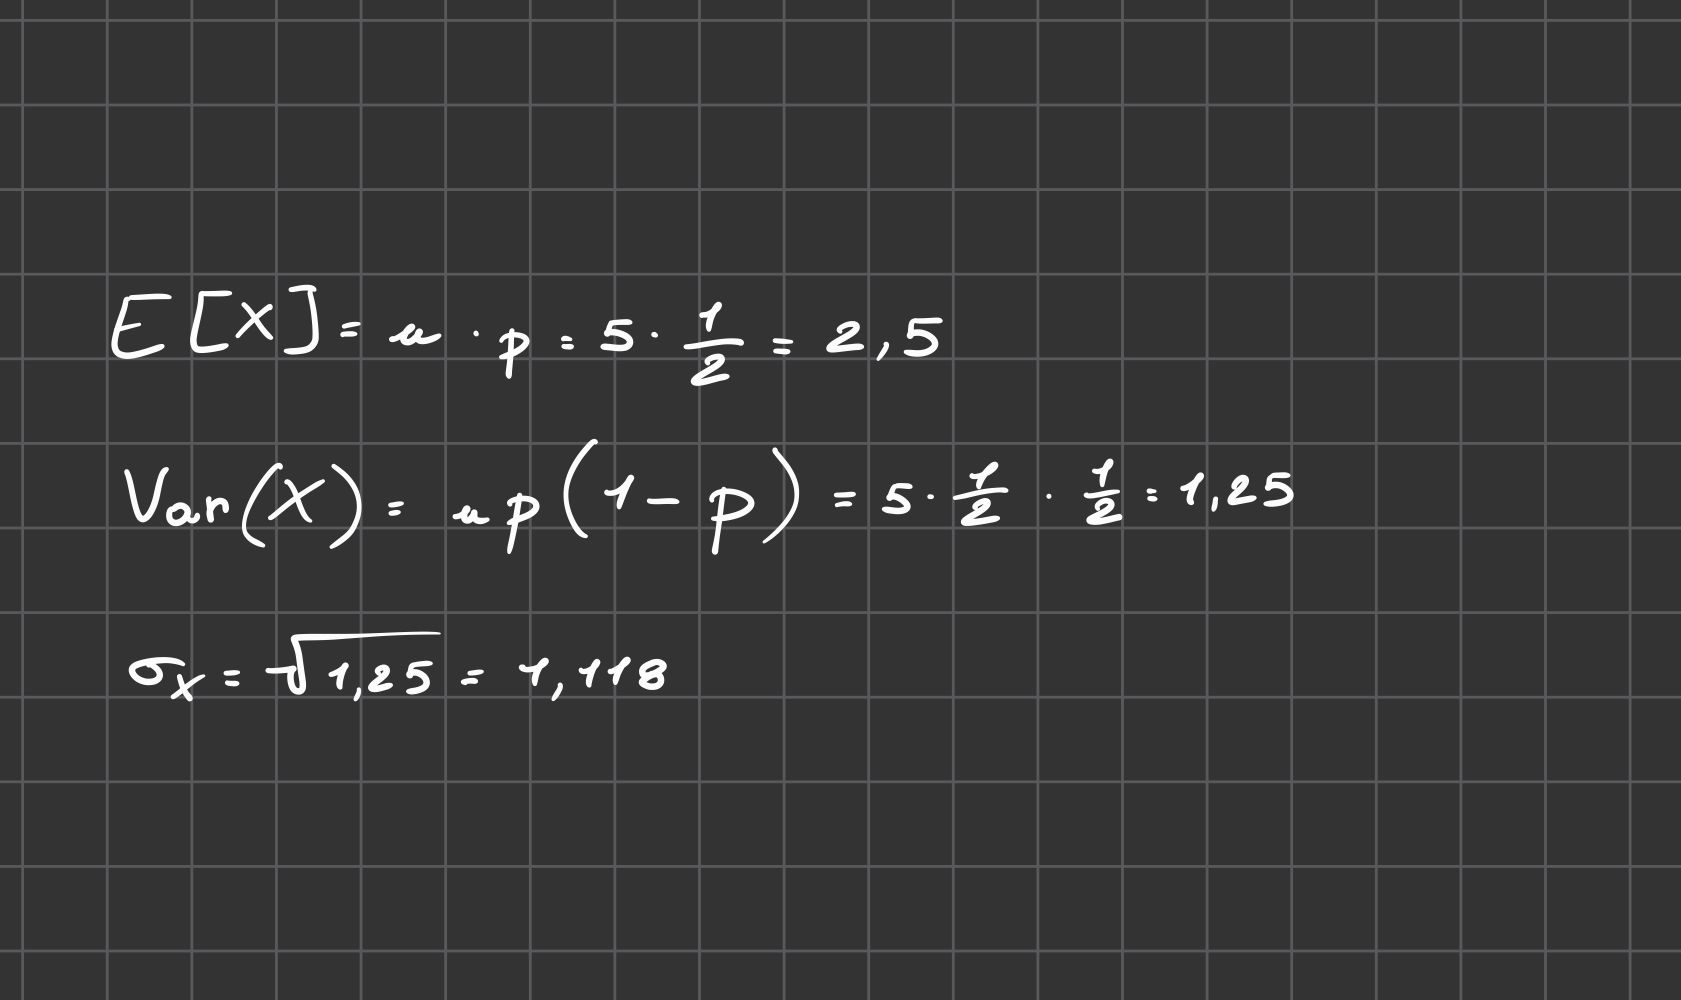 E[X] = n · p = 5 · 1/2 = 2,5
Var(X) = np(1-p) = 5 · 1/2 · 1/2 = 1,25
σ_X = √1,25 = 1,118